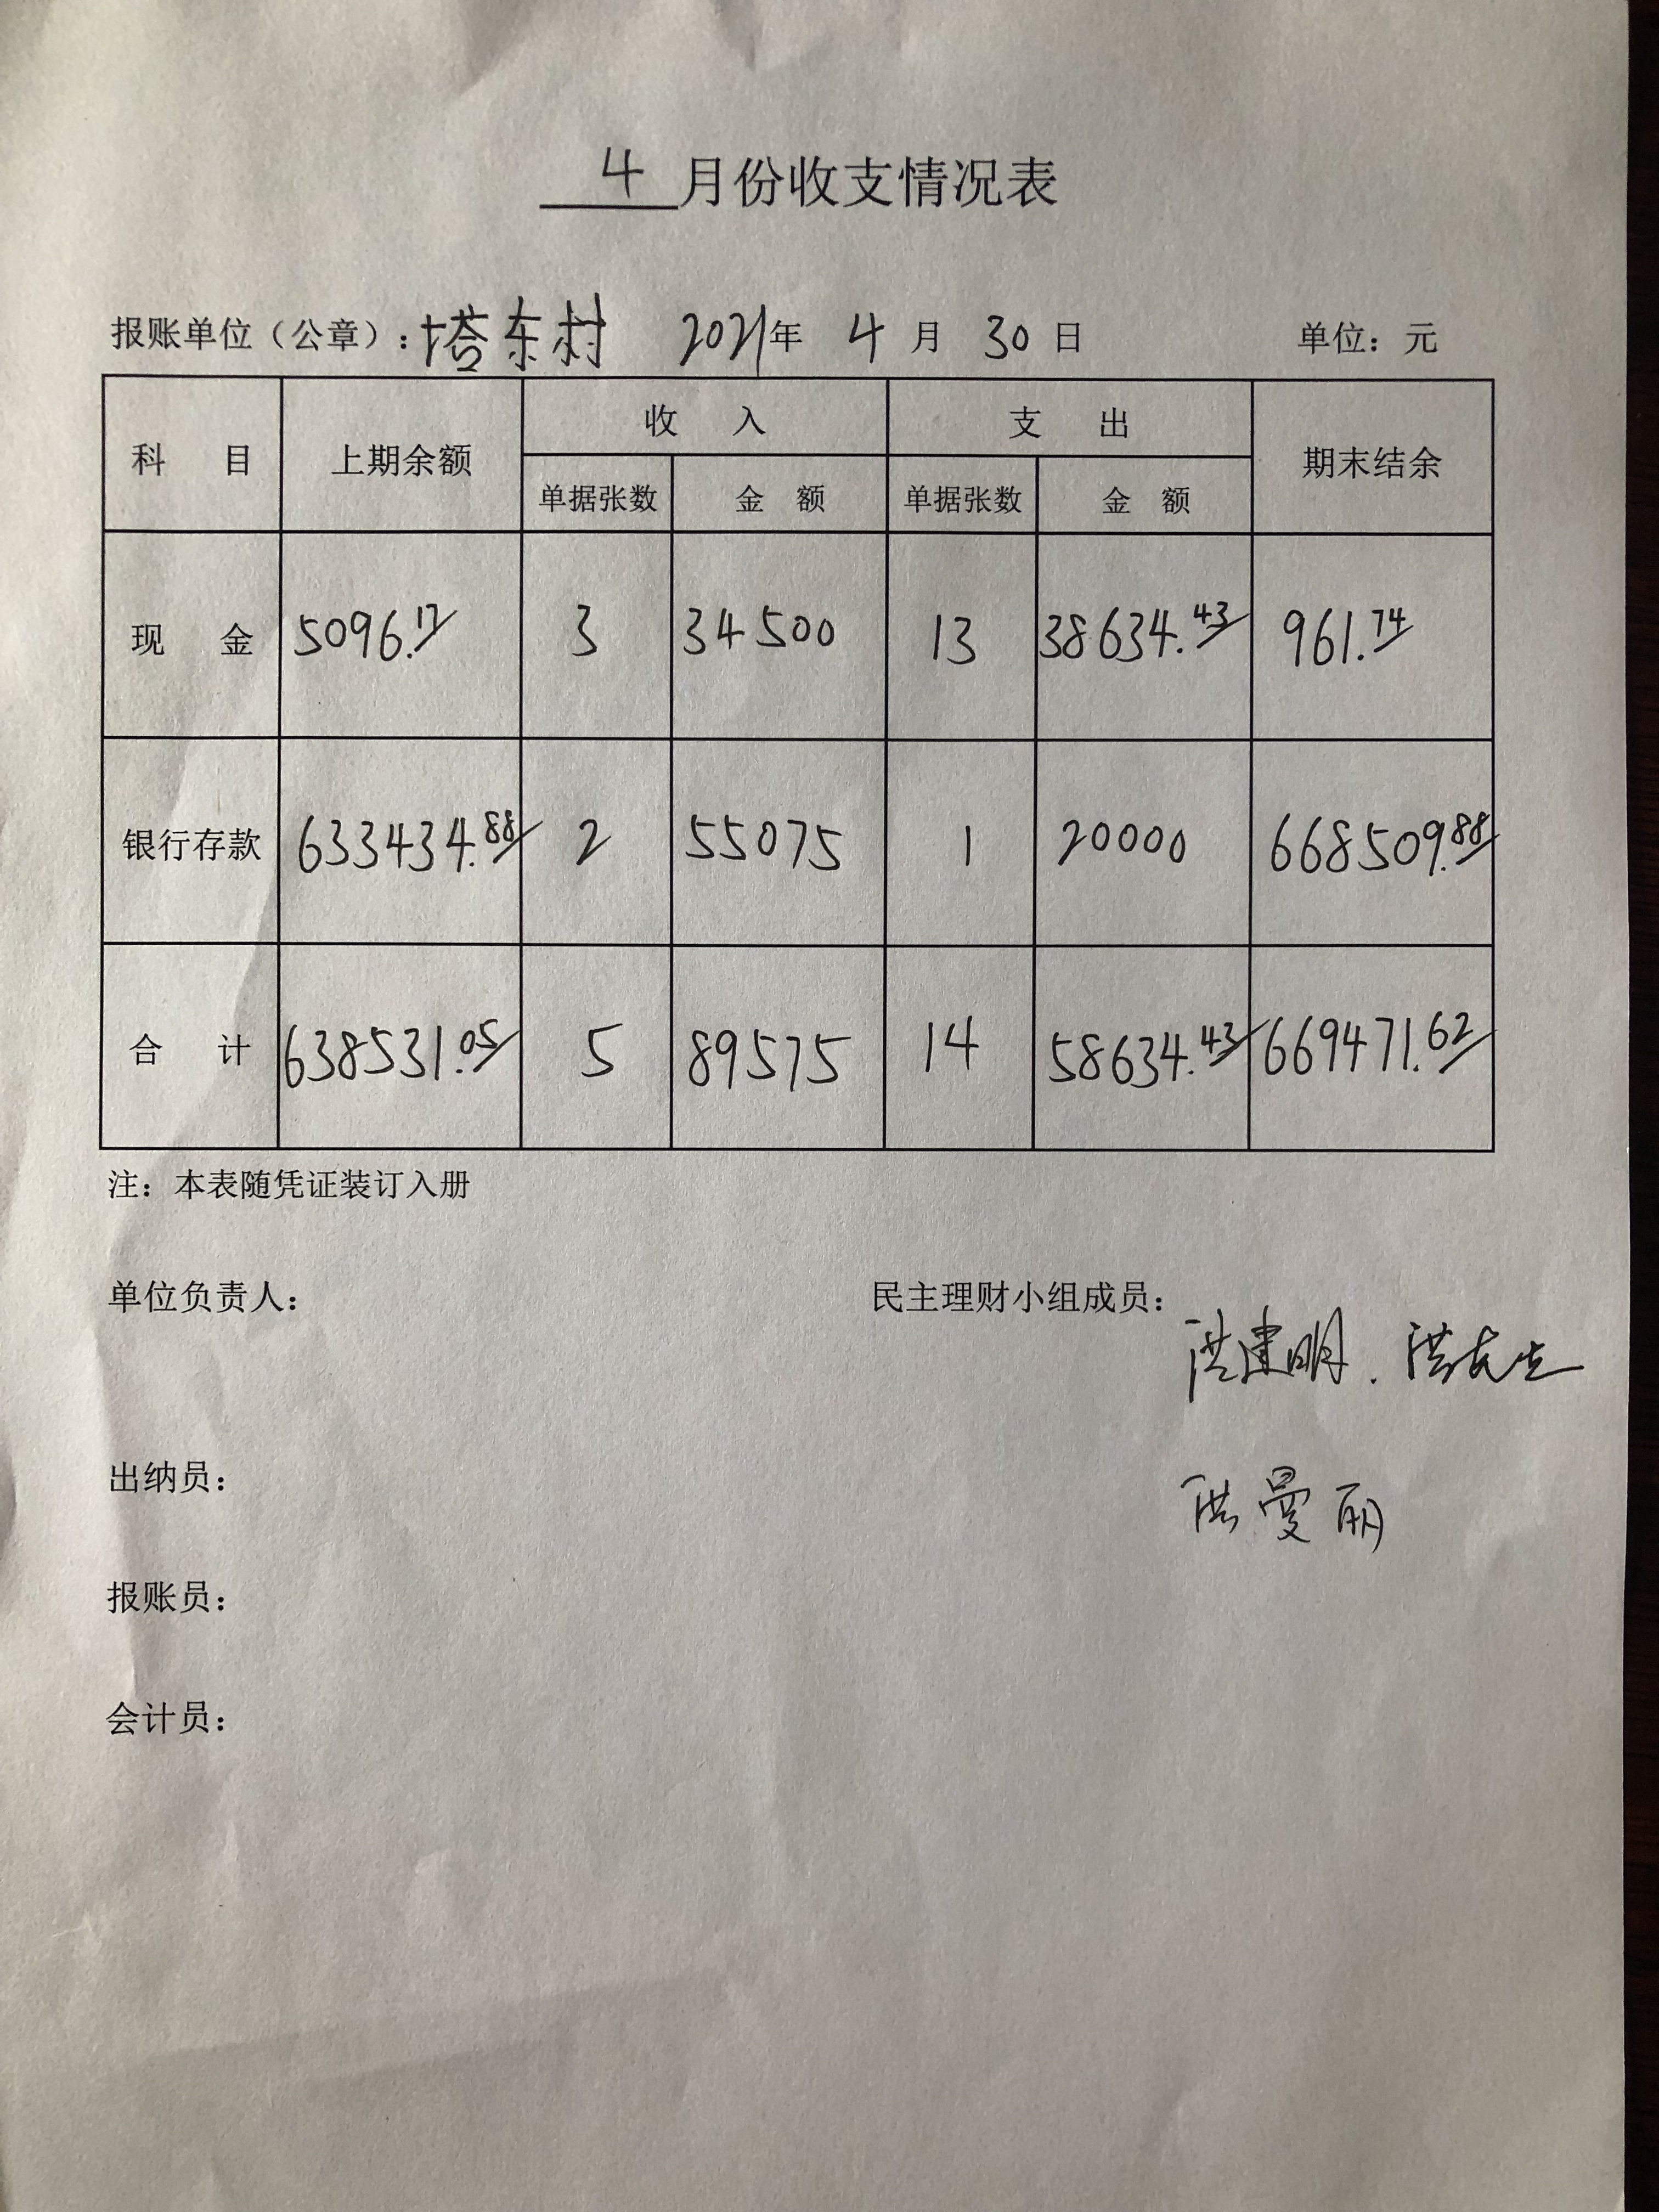 4月份收支情况表
报账单位（公章）：塔东村 2021年 4月 30日 单位：元
科目 上期余额 收入 支出 期末结余
单据张数 金额 单据张数 金额
现金 5096.17 3 34500 13 38634.43 961.74
银行存款 633434.88 2 55075 1 20000 668509.88
合计 638531.05 5 89575 14 58634.43 669471.62
注：本表随凭证装订入册
单位负责人： 民主理财小组成员：
洪建明.
出纳员：
洪曼丽
报账员：
会计员：